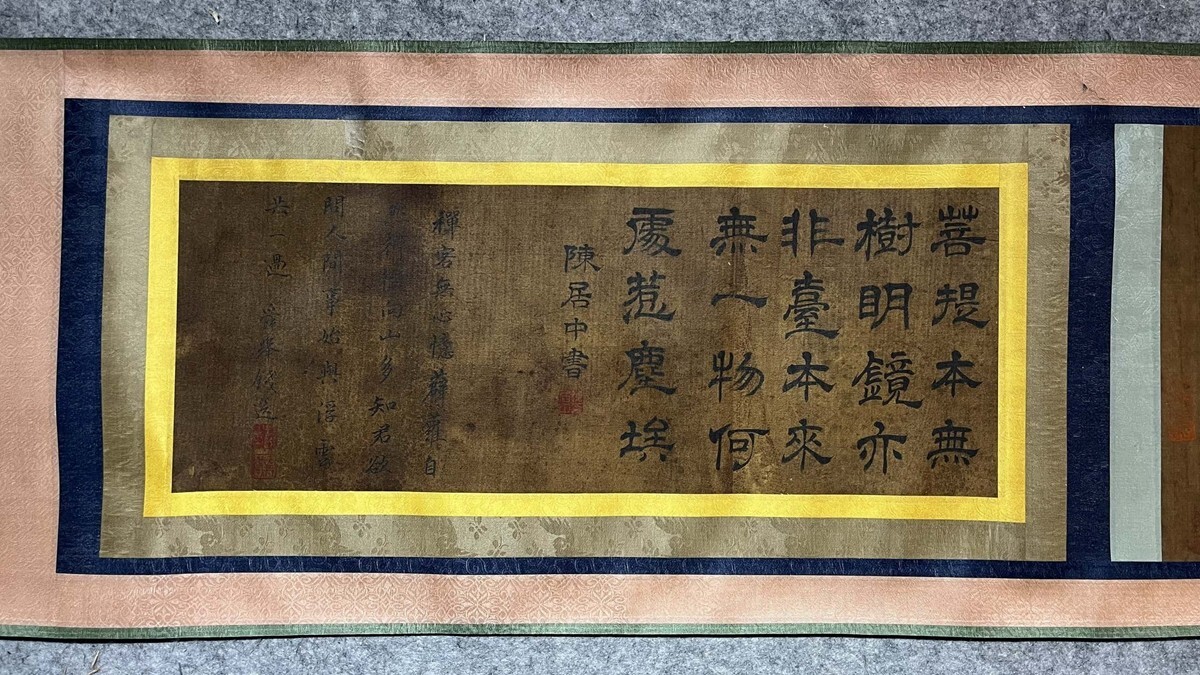 菩提本無
樹明鏡亦
非臺本來
無一物何
處惹塵埃
陳居中書
禪客無心憶薜蘿自
向山多知君欲
問人間事始與浮雲
共一過 舜舉錢選